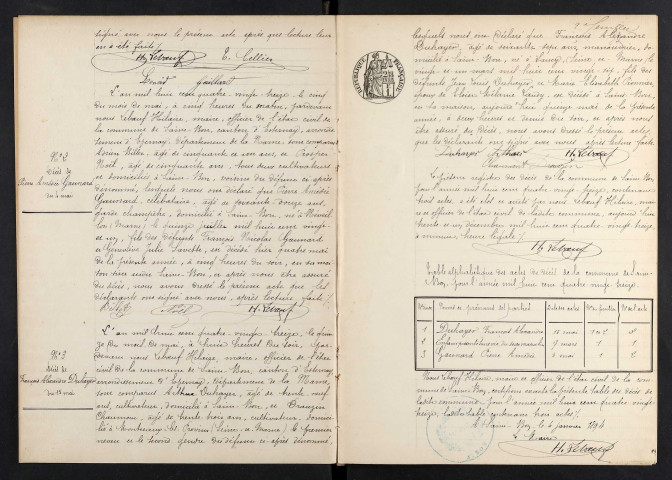 signé avec nous le présent acte après que lecture leur
en a été faite
H. Lebœuf E. Cellier
L'an mil huit cent quatre vingt treize, le cinq
du mois de mai, à cinq heures du matin, pardevant
nous Lebœuf Hilaire, maire, officier de l'état civil de
la commune de Saint-Bon, canton d'Esternay, arrondis
sement d'Épernay, département de la Marne, sont comparus
âgé de cinquante et un ans, et Prosper
Noël, âgé de cinquante ans, tous deux cultivateurs
et domiciliés à Saint-Bon, voisins du défunt ci-après
dénommé, lesquels nous ont déclaré que Pierre Amédée
célibataire, âgé de soixante douze ans,
garde champêtre, domicilié à Saint-Bon, né à
(Marne), le quinze juillet mil huit cent vingt
et un, fils des défunts François Nicolas
et Julie est décédé hier quatre mai
de la présente année, à cinq heures du soir, en sa mai
son sise audit Saint-Bon, et après nous être assuré
du décès, nous avons dressé le présent acte que les
déclarants ont signé avec nous, après lecture faite
Noël H. Lebœuf
N° 2
Décès de
Pierre Amédée
du 4 mai
L'an mil huit cent quatre vingt treize, le quin
ze du mois de mai, à huit heures du soir, par
devant nous Lebœuf Hilaire, maire, officier de l'état
civil de la commune de Saint-Bon, canton d'Esternay
arrondissement d'Épernay, département de la Marne,
sont comparus Arthur Duhayer, âgé de trente neuf
ans, cultivateur, domicilié à Saint-Bon, et
Chaumont, âgé de trente trois ans, cultivateur, domici
lié à Montceaux-les-Provins (Seine-et-Marne), le premier
neveu et le second gendre du défunt ci-après dénommé,
N° 3
Décès de
François Alexandre Duhayer
du 15 mai
lesquels nous ont déclaré que François Alexandre
Duhayer, âgé de soixante ans, domi
cilié à Saint-Bon, né à
vingt et un mai mil huit cent vingt six, fils des
défunts Jean Louis Duhayer, et Marie Elisabeth
époux de est décédé à Saint-Bon
en sa maison, aujourd'hui quinze mai de la présente
année, à deux heures et demie du soir, et après nous
être assuré du décès, nous avons dressé le présent acte,
que les déclarants ont signé avec nous après lecture faite.
Duhayer Arthur H. Lebœuf
Chaumont
RÉPUBLIQUE FRANÇAISE
Le présent registre des décès de la commune de Saint-Bon
pour l'année mil huit cent quatre vingt treize, contenant
trois actes, a été clos et arrêté par nous Lebœuf Hilaire, mai
re et officier de l'état civil de ladite commune, aujourd'hui trente
et un décembre mil huit cent quatre vingt treize,
à minuit, heure légale
H. Lebœuf
Table alphabétique des actes de décès de la commune de Saint-
Bon, pour l'année mil huit cent quatre vingt treize.
Noms et prénoms des parties Date des actes
1 Duhayer François Alexandre 15 mai
2 9 mars 1
3 Pierre Amédée 5 mai 1 2
Nous Lebœuf Hilaire, maire et officier de l'état civil de la com
mune de Saint-Bon, certifions exacte la présente table des décès de
ladite commune, pour l'année mil huit cent quatre vingt
treize, ladite table contenant trois actes
A Saint-Bon, le 6 janvier 1894
Le Maire
H. Lebœuf